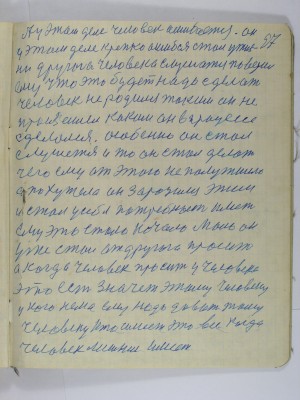 А у этом деле человек ошибается. он
у этом деле крепко ошибся стал у той-
ни другога человека слушать поверил 37
ему что это будет надо сделать
человек не родился таким он не
каким он в процессе
сделался. особенно он стал
слушется и то он стал делать
чего ему от этого не получшило
а похужило он заразился этим
и стал у себя потребным
ему это стало начало Мать он
уже стал от другога просить
а когда человек просит у человека
это есть значет этому человеку
у кого нема ему надо давать тому
человеку это все когда
человек имеет